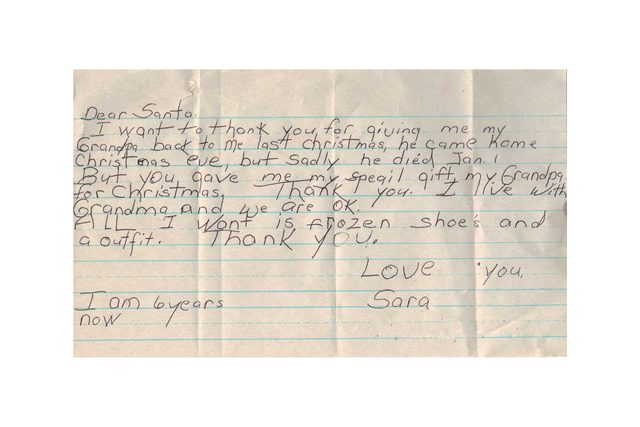 Dear Santa.
I want to thank you for giving me my
Grandpa back to me last christmas, he came home
Christmas eve, but sadly he died Jan. 1
But you gave me my speqil gift my Grandpa
for Christmas. Thank you. I live with
Grandma and we are ok.
ALL I want is frozen shoe's and
a outfit. Thank you.
Love you,
Sara
I am 6 years
now